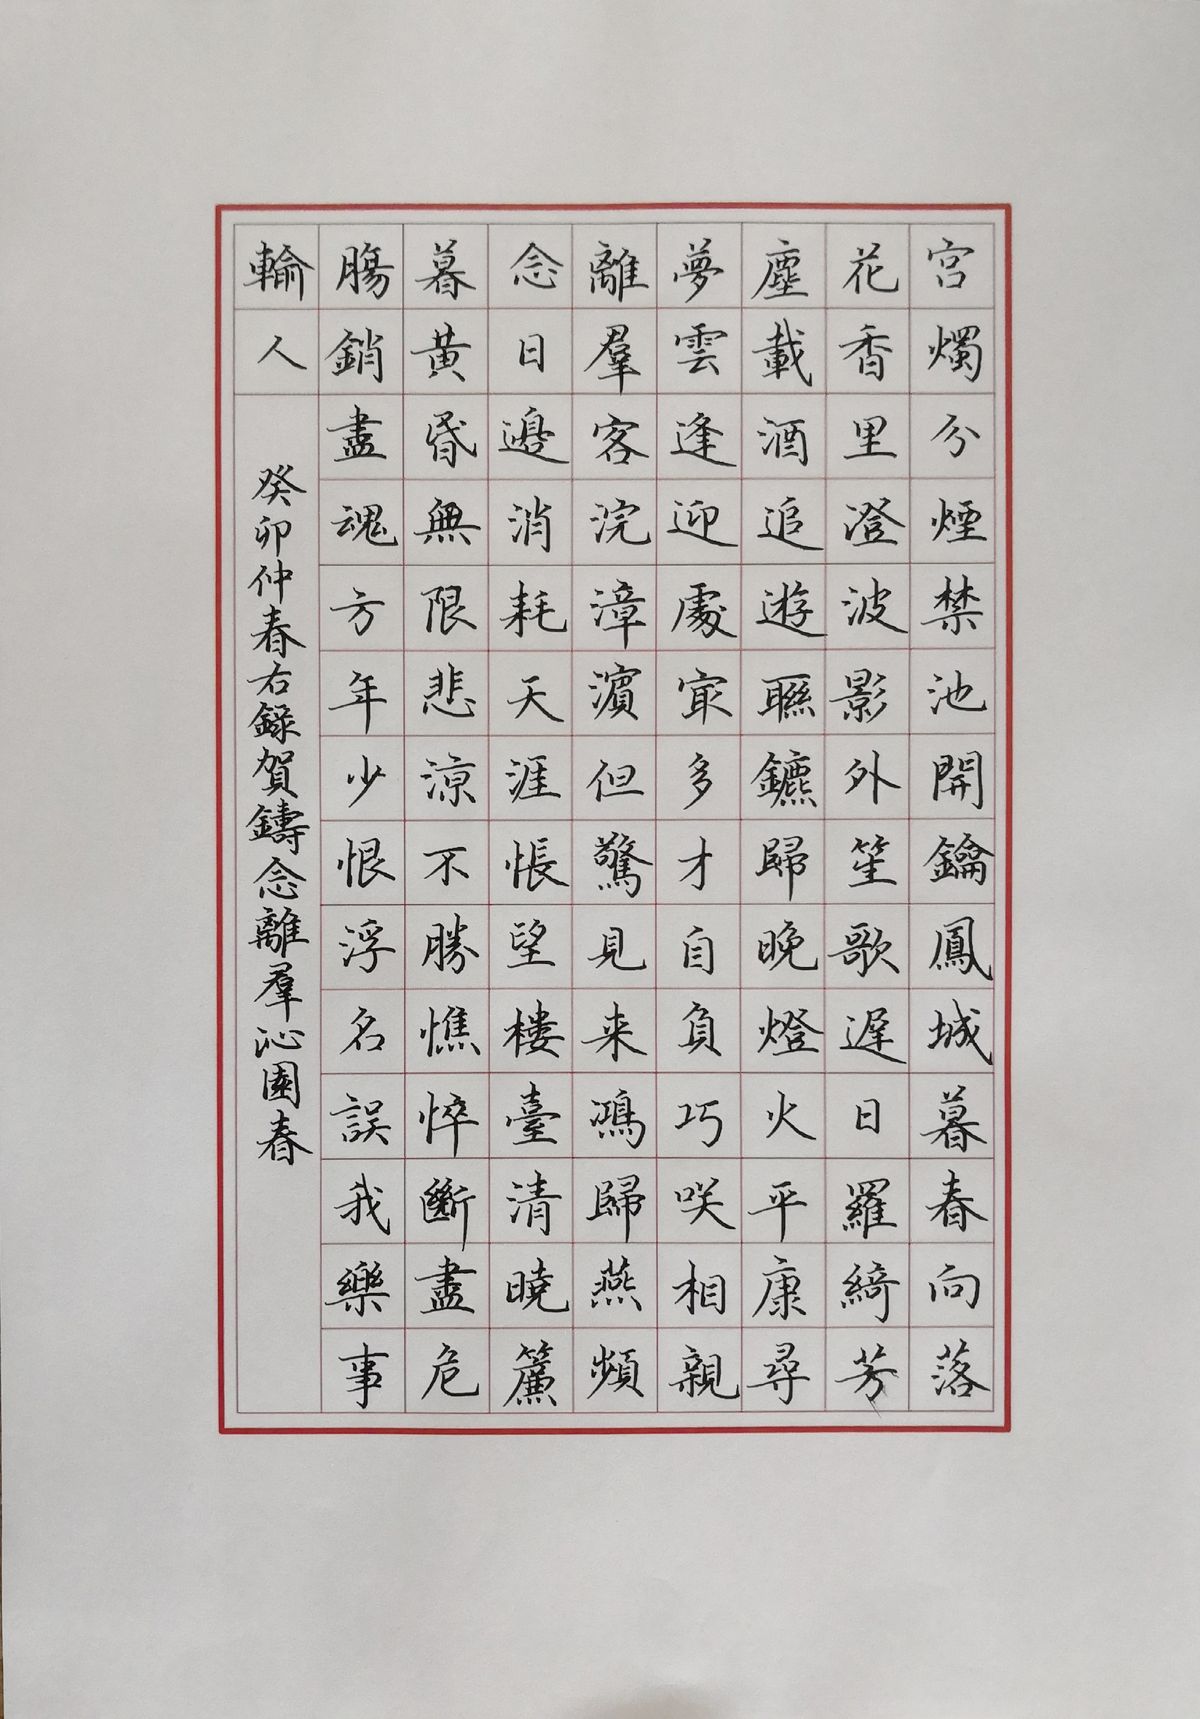 宮燭分煙禁池開鑰鳳城暮春向落
花香里澄波影外笙歌遲日羅綺芳
塵載酒追遊聮鑣歸晚燈火平康尋
夢雲逢迎處㝡多才自負巧咲相親
離羣客浣漳濱但驚見来鴻歸燕頻
念日邊消耗天涯悵望樓臺清曉簾
暮黃昏無限悲涼不勝憔悴斷盡危
腸銷盡魂方年少恨浮名誤我樂事
輸人
癸卯仲春右錄賀鑄念離羣沁園春